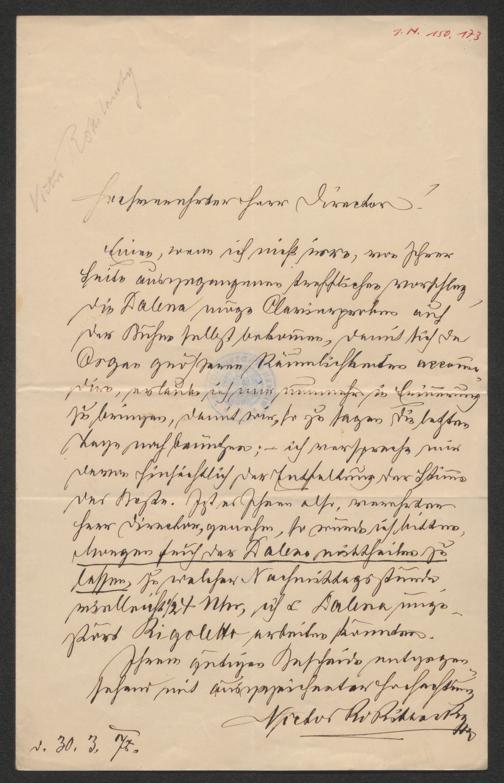 I.N. 150.173
Victor Rokitansky
Hochverehrter Herr Director!
Einen, wenn ich nicht irre, von Ihrer
Seite ausgegangenen trefflichen Vorschlag,
die Dalena möge Clavierproben auf
der Bühne selbst bekommen, damit sich das
Organ größeren Räumlichkeiten accomo-
dire, erlaube ich mir, nunmehr in Erinnerung
zu bringen, damit wir, so zu sagen die letzten
Tage noch benützen; – ich verspreche mir
davon hinsichtlich der Entfaltung der Stimme
das Beste. Ist es Ihnen also, verehrter
Herr Director, genehm, so würde ich bitten,
Morgen früh der Dalena mittheilen zu
lassen, zu welcher Nachmittagsstunde
vielleicht 1/2 4 Uhr, ich & Dalena unge-
stört Rigoletto arbeiten könnten.
Ihrem gütigen Bescheide entgegen-
sehend mit ausgezeichneter Hochachtung
Victor Rokitansky
d. 30. 3.